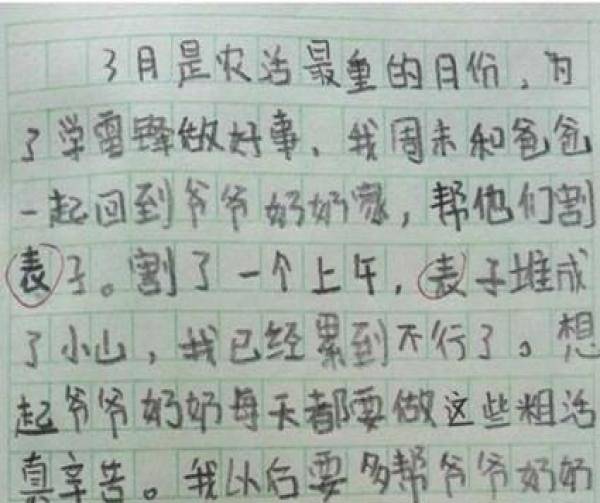 3月是农活最重的月份，为
了学雷锋做好事、我周末和爸爸
一起回到爷爷奶奶家，帮他们割
表子。割了一个上午，表子堆成
了小山，我已经累到不行了。想
起爷爷奶奶每天都要做这些粗活
真辛苦。我以后要多帮爷爷奶奶